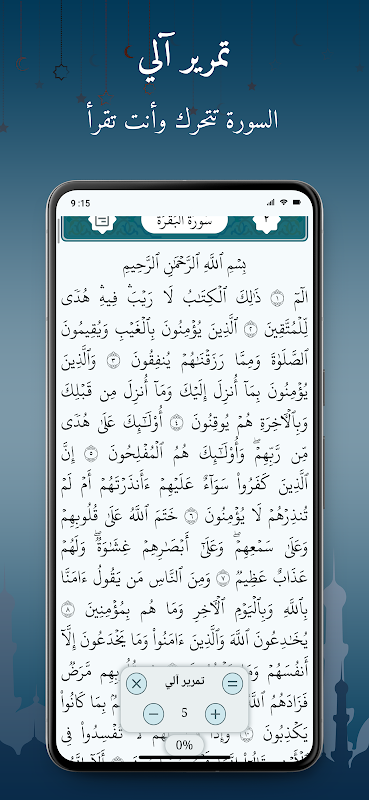 تمرير آلي
السورة تتحرك وأنت تقرأ
9:15
سورة البقرة
٢
بِسْمِ ٱللَّهِ ٱلرَّحْمَٰنِ ٱلرَّحِيمِ
الٓمٓ ١ ذَٰلِكَ ٱلْكِتَٰبُ لَا رَيْبَۛ فِيهِۛ هُدًى
لِّلْمُتَّقِينَ ٢ ٱلَّذِينَ يُؤْمِنُونَ بِٱلْغَيْبِ وَيُقِيمُونَ
ٱلصَّلَوٰةَ وَمِمَّا رَزَقْنَٰهُمْ يُنفِقُونَ ٣ وَٱلَّذِينَ
يُؤْمِنُونَ بِمَآ أُنزِلَ إِلَيْكَ وَمَآ أُنزِلَ مِن قَبْلِكَ
وَبِٱلْأَخِرَةِ هُمْ يُوقِنُونَ ٤ أُو۟لَٰٓئِكَ عَلَىٰ هُدًى
مِّن رَّبِّهِمْۖ وَأُو۟لَٰٓئِكَ هُمُ ٱلْمُفْلِحُونَ ٥ إِنَّ
ٱلَّذِينَ كَفَرُوا۟ سَوَآءٌ عَلَيْهِمْ ءَأَنذَرْتَهُمْ أَمْ لَمْ
تُنذِرْهُمْ لَا يُؤْمِنُونَ ٦ خَتَمَ ٱللَّهُ عَلَىٰ قُلُوبِهِمْ
وَعَلَىٰ سَمْعِهِمْۖ وَعَلَىٰٓ أَبْصَٰرِهِمْ غِشَٰوَةٌۖ وَلَهُمْ
عَذَابٌ عَظِيمٌ ٧ وَمِنَ ٱلنَّاسِ مَن يَقُولُ ءَامَنَّا
بِٱللَّهِ وَبِٱلْيَوْمِ ٱلْأَخِرِ وَمَا هُم بِمُؤْمِنِينَ ٨
يُخَٰدِعُونَ ٱللَّهَ وَٱلَّذِينَ ءَامَنُوا۟ وَمَا يَخْدَعُونَ إِلَّآ
أَنفُسَهُمْ وَمَا يَشْعُرُونَ ٩ فِى قُلُوبِهِم مَّرَضٌ
فَزَادَهُمُ ٱللَّهُ بِمَا كَانُوا۟
يَكْذِبُونَ ١٠ وَإِذَا لَهُمْ لَا تُفْسِدُوا۟ فِى
تمرير آلي
5
0%